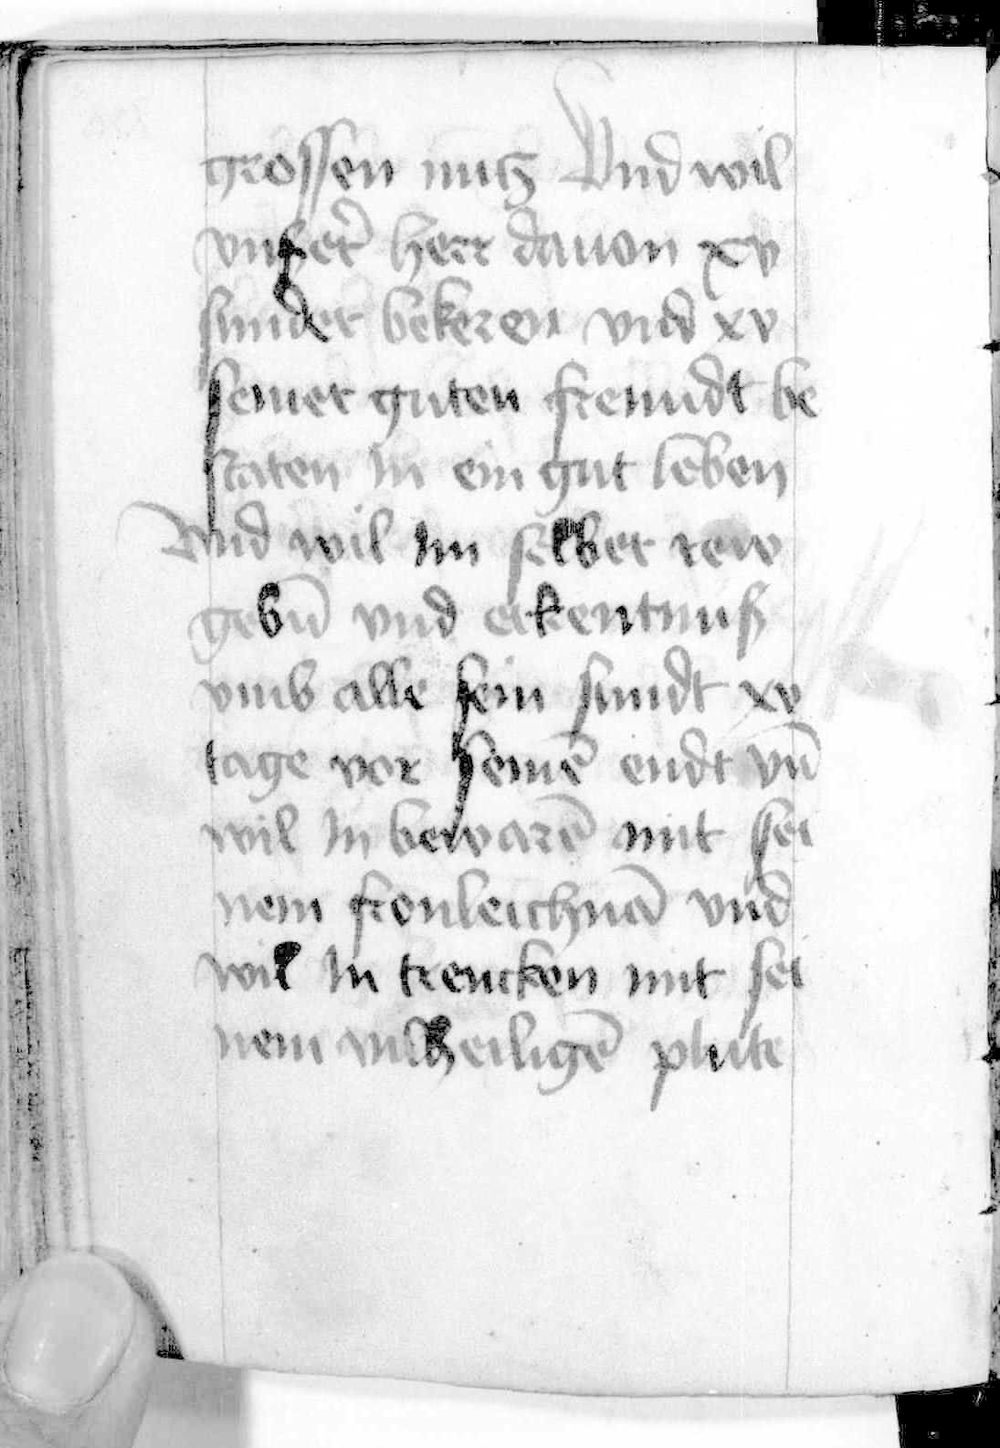 grossen nutz Vnd wil
vnser̄ herr dauon xv
sunder bekeren vnd xv
seiner guten freundt be
staten In ein gut leben
Vnd wil Im selber rew
gebn̄ vnd erkentnuß
vmb alle sein sundt xv
tage vor seinē endt vn̄
wil In bewarē mit sei
nem fronleichnā vnd
wil In trencken mit sei
nem vilheiligē plute